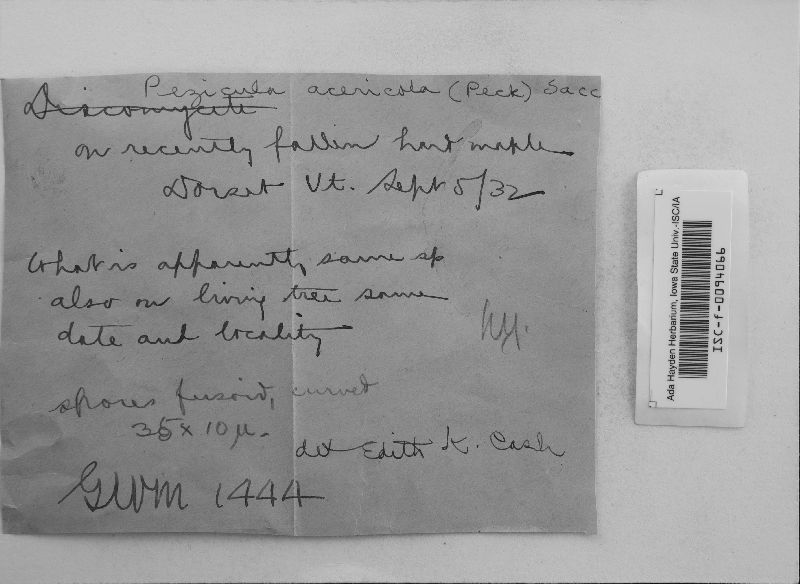 Pezicula acericola (Peck) Sacc
Discomycete
on recently fallen hard maple
Dorset Vt. Sept 5/32
What is apparently same sp
also on living tree same
date and locality
spores fusoid, curved
35 x 10 µ.
det Edith K. Cash
GWM 1444
Ada Hayden Herbarium, Iowa State Univ.-ISC/IA
ISC-f-0094066